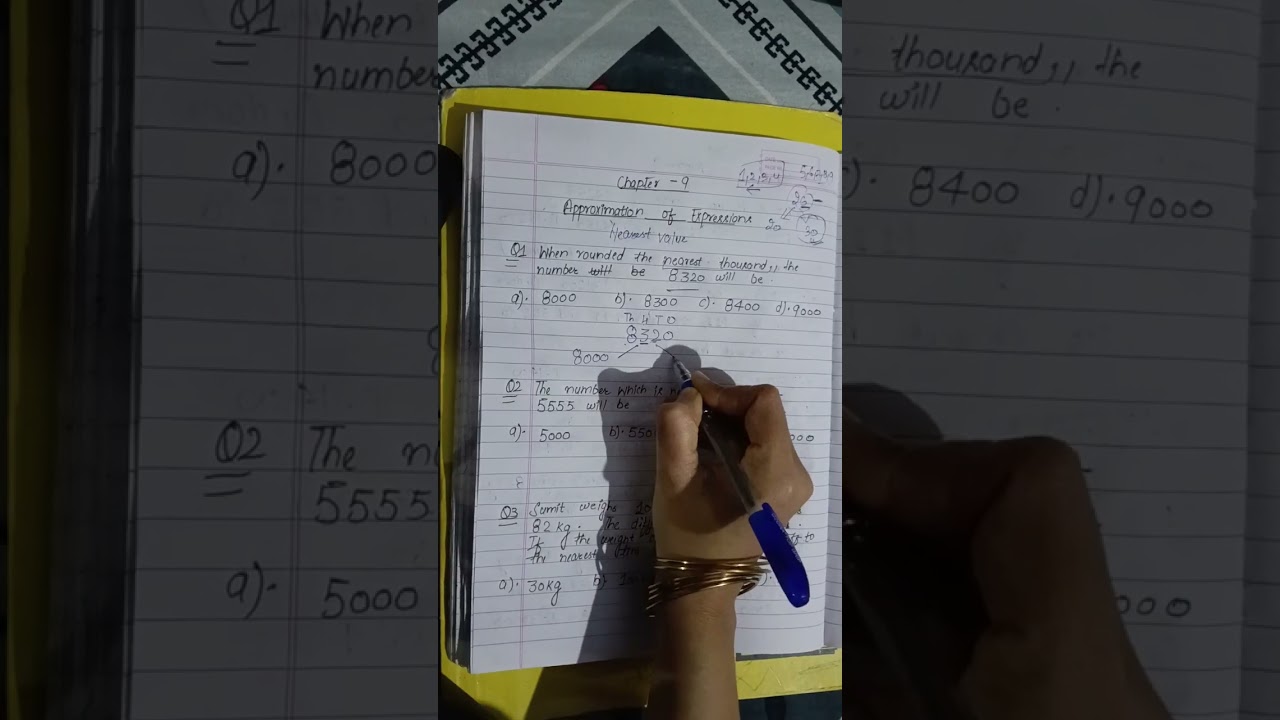 Chapter - 9
1,2,3,4
Approximation of Expressions
20
30
Nearest value
Q1 When rounded the nearest thousand,, the
number will be 8320 will be.
a). 8000 b). 8300 c). 8400 d). 9000
Th H T O
8320
8000
Q2 The number which is
5555 will be
a). 5000 b). 550 000
Q3 Sumit weighs
82 kg. The
If the weight to
the nearest
a). 30kg b).
Q1 When thousand,, the
number will be.
a). 8000 8400 d). 9000
Q2 The
5555
a). 5000 000